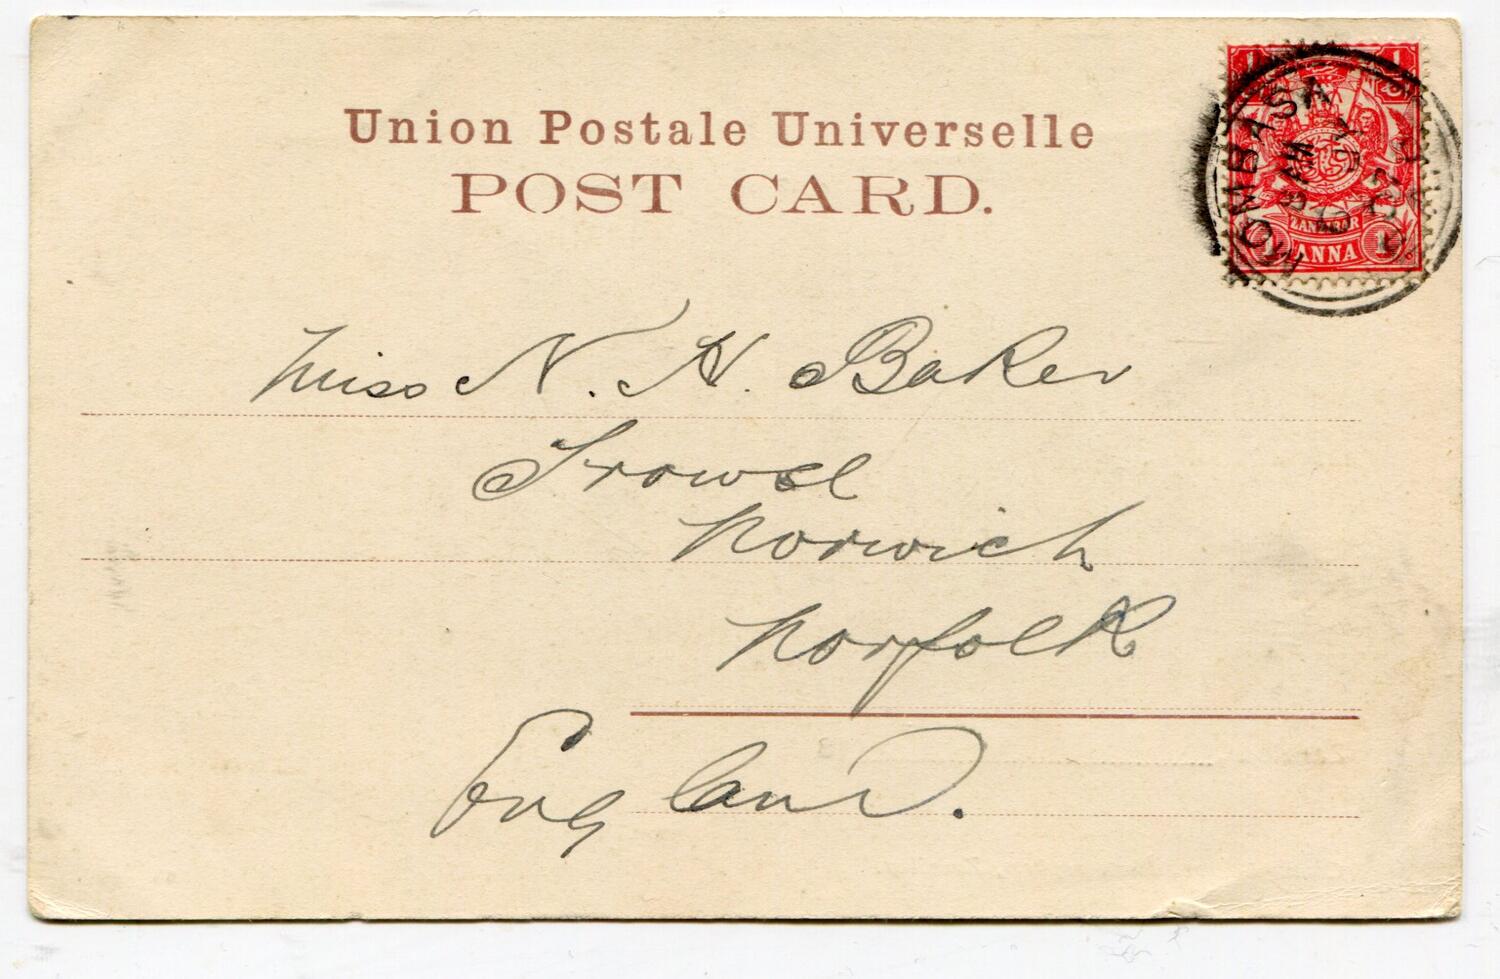 Union Postale Universelle
POST CARD.
MOMBASA
ZANZIBAR
1 ANNA 1
Miss N. H. Baker
Trowse
Norwich
Norfolk
England.